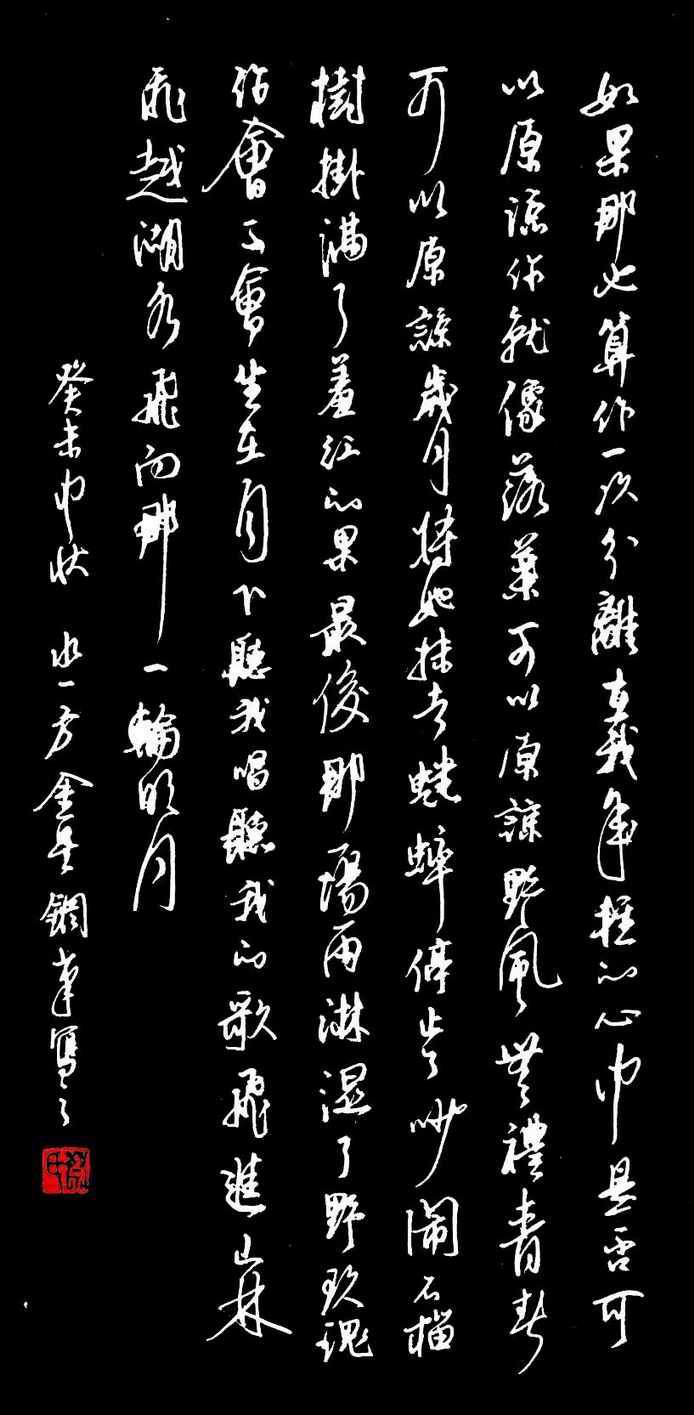 如果那也算作一次分離在我年輕的心中是否可
以原諒你就像落葉可以原諒野風無禮青春
可以原諒歲月將她抹去蟋蟀停止了吵鬧石榴
樹掛滿了羞红的果最後那場雨淋湿了野玫瑰
你會不會坐在月下聽我唱聽我的歌飛進山林
飛越湖水飛向那一輪明月
癸未中秋 水一方 金 鋼筆寫之